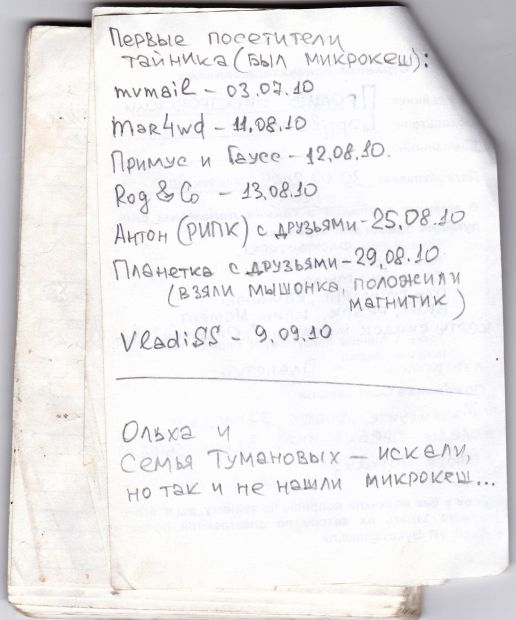 Первые посетители
тайника (был микрокеш):
mvmail - 03.07.10
Mar4wd - 11.08.10
Примус и Гаусс - 12.08.10.
Rog & Co - 13.08.10
Антон (РИПК) с друзьями - 25.08.10
Планетка с друзьями - 29.08.10
(взяли мышонка, положили
магнитик)
VladiSS - 9.09.10
Ольха и
Семья Тумановых - искали,
но так и не нашли микрокеш...